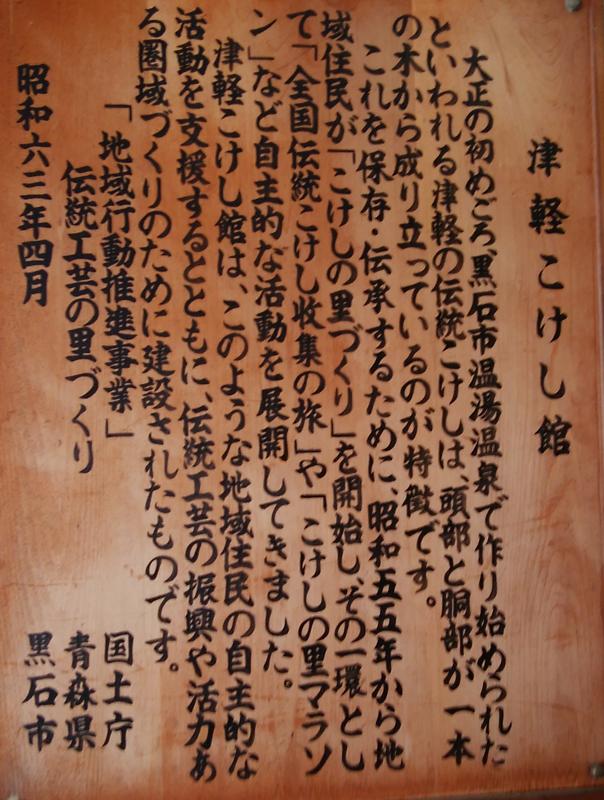 津軽こけし館
大正の初めごろ、黒石市温湯温泉で作り始められた
といわれる津軽の伝統こけしは、頭部と胴部が一本
の木から成り立っているのが特徴です。
これを保存・伝承するために、昭和五五年から地
域住民が「こけしの里づくり」を開始し、その一環とし
て「全国伝統こけし収集の旅」や「こけしの里マラソ
ン」など自主的な活動を展開してきました。
津軽こけし館は、このような地域住民の自主的な
活動を支援するとともに、伝統工芸の振興や活力あ
る圏域づくりのために建設されたものです。
「地域行動推進事業」
伝統工芸の里づくり
昭和六三年四月
国土庁
青森県
黒石市